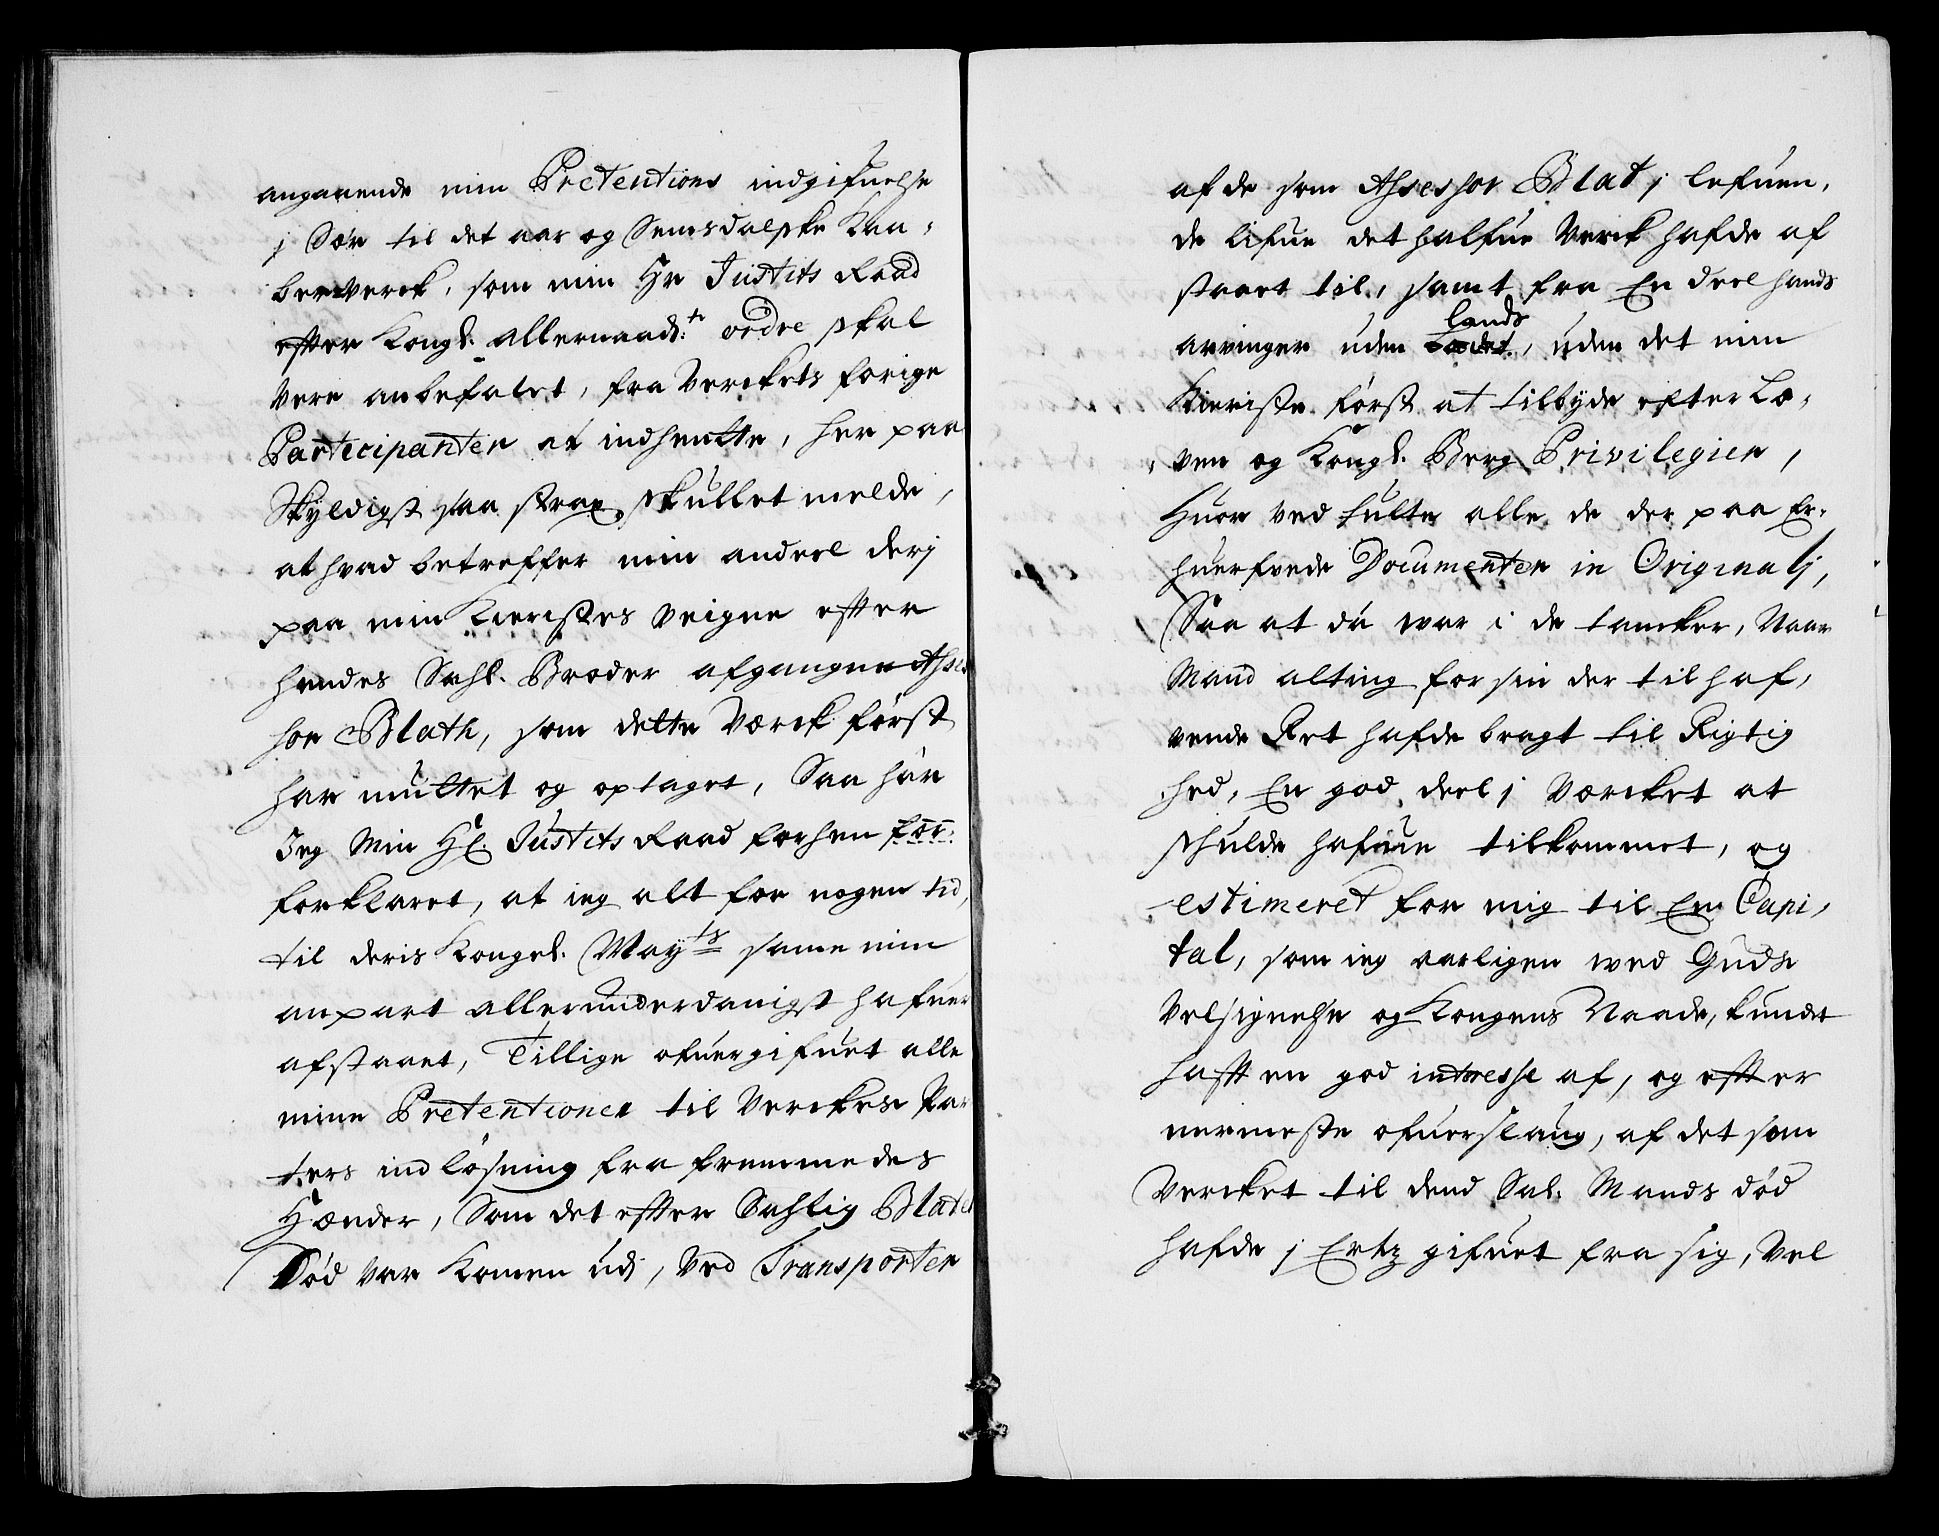 angaaende min Pretentions indgifuelse
j Sør til det aar og Semsdalske Kaa-
berverck, som min Hr Justits Raad
efter Kongl. allernaad:te ordre skal
vere anbefalet, fra Verckets forige
Participanter at indhentte, her paa
Skyldigst saa strax skullet melde,
at hvad betreffer min andeel derj
paa min Kieristes veigne efter
hendes Sahl. Broder afgangne Asses
sor Blath, som dette Værck først
har muttet og optaget, Saa har
Jeg Min Hl. Justits Raad forhen for:
forklaret, at ieg alt for nogen tid,
til deris Kongel. Mayts same min
anpart allerunderdanigst hafuer
afstaaet, Tillige ofuergifuet alle
mine Pretentioner til Verckes Par
ters indløsning fra fremmedes
Hænder, Som det efter Sahlig Blates
Død var Komen ud, ved Transporter
af de som Assessor Blat j lefuen,
de lifue det halfue Verck hafde af
staaet til, samt fra En deel hands
arvinger uden Lands, uden det min
Kieriste først at tilbyde efter Lo-
ven og Kongl. Berg Privilegier,
Huor ved fulte alle de der paa Er-
huerfvede Documenter in Originalj,
Saa at da war i de tancker, Naar
Mand alting for sin der til haf,
vende Ret hafde bragt til Rigtig
hed, En god deel j Værcket at
skulde hafue tilkommet, og
estimeret for mig til En Capi,
tal, som ieg aarligen wed Guds
Velsignelse og Kongens Naade, kundet
hafft en god interesse af, og efter
nermeste ofuerslaug, af det som
Vercket til dend Sal. Mands død
hafde j Ertz gifuet fra sig, vel